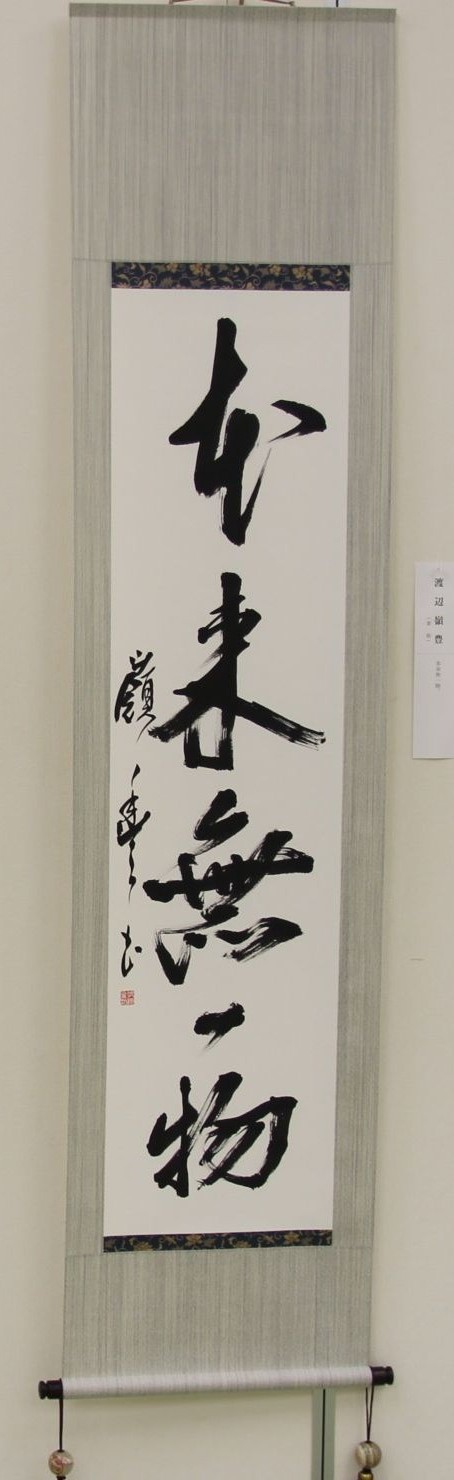 本来無一物
嶺豊書
渡辺嶺豊